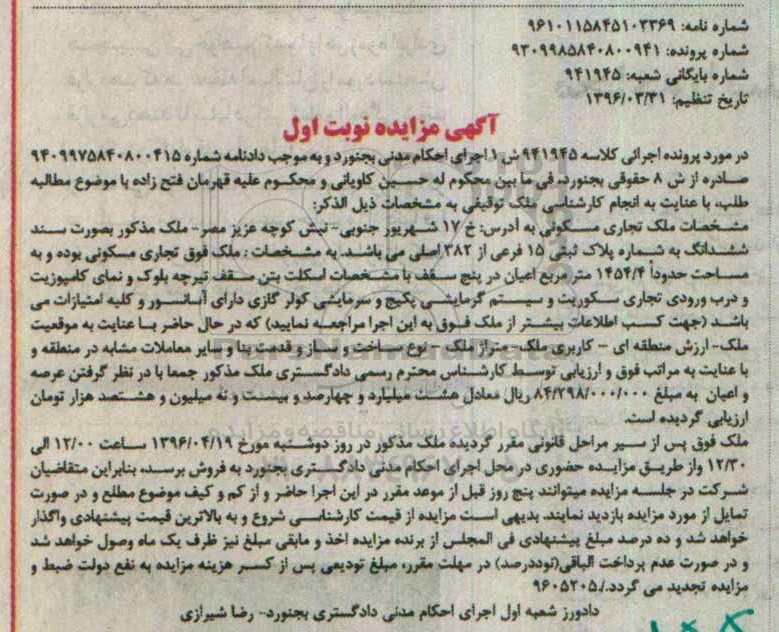 شماره نامه: ۹۶۱۰۱۱۵۸۴۵۱۰۳۳۶۹
شماره پرونده: ۹۳۰۹۹۸۵۸۴۰۸۰۰۹۴۱
شماره بایگانی شعبه: ۹۴۱۹۴۵
تاریخ تنظیم: ۱۳۹۶/۰۳/۳۱
آگهی مزایده نوبت اول
در مورد پرونده اجرائی کلاسه ۹۴۱۹۴۵ ش ۱ اجرای احکام مدنی بجنورد و به موجب دادنامه شماره ۹۴۰۹۹۷۵۸۴۰۸۰۰۴۱۵
صادره از ش ۸ حقوقی بجنورد، فی ما بین محکوم له حسین کاویانی و محکوم علیه قهرمان فتح زاده با موضوع مطالبه
طلب، با عنایت به انجام کارشناسی ملک توقیفی به مشخصات ذیل الذکر:
مشخصات ملک تجاری مسکونی به آدرس: خ ۱۷ شهریور جنوبی- نبش کوچه عزیز مصر- ملک مذکور بصورت سند
ششدانگ به شماره پلاک ثبتی ۱۵ فرعی از ۳۸۲ اصلی می باشد. به مشخصات: ملک فوق تجاری مسکونی بوده و به
مساحت حدوداً ۱۴۵۴/۴ متر مربع اعیان در پنج سقف با مشخصات اسکلت بتن سقف تیرچه بلوک و نمای کامپوزیت
و درب ورودی تجاری سکوریت و سیستم گرمایشی پکیج و سرمایشی کولر گازی دارای آسانسور و کلیه امتیازات می
باشد (جهت کسب اطلاعات بیشتر از ملک فوق به این اجرا مراجعه نمایید) که در حال حاضر با عنایت به موقعیت
ملک- ارزش منطقه ای - کاربری ملک- متراژ ملک - نوع ساخت و ساز و قدمت بنا و سایر معاملات مشابه در منطقه و
با عنایت به مراتب فوق و ارزیابی توسط کارشناس محترم رسمی دادگستری ملک مذکور جمعا با در نظر گرفتن عرصه
و اعیان به مبلغ ۸۴/۲۹۸/۰۰۰/۰۰۰ ریال معادل هشت میلیارد و چهارصد و بیست و نه میلیون و هشتصد هزار تومان
ارزیابی گردیده است.
ملک فوق پس از سیر مراحل قانونی مقرر گردیده ملک مذکور در روز دوشنبه مورخ ۱۳۹۶/۰۴/۱۹ ساعت ۱۲/۰۰ الی
۱۲/۳۰ واز طریق مزایده حضوری در محل اجرای احکام مدنی دادگستری بجنورد به فروش برسد، بنابراین متقاضیان
شرکت در جلسه مزایده میتوانند پنج روز قبل از موعد مقرر در این اجرا حاضر و از کم و کیف موضوع مطلع و در صورت
تمایل از مورد مزایده بازدید نمایند. بدیهی است مزایده از قیمت کارشناسی شروع و به بالاترین قیمت پیشنهادی واگذار
خواهد شد و ده درصد مبلغ پیشنهادی فی المجلس از برنده مزایده اخذ و مابقی مبلغ نیز ظرف یک ماه وصول خواهد شد
و در صورت عدم پرداخت الباقی(نوددرصد) در مهلت مقرر، مبلغ تودیعی پس از کسر هزینه مزایده به نفع دولت ضبط و
مزایده تجدید می گردد./۹۶۰۵۲۰۵
دادورز شعبه اول اجرای احکام مدنی دادگستری بجنورد- رضا شیرازی